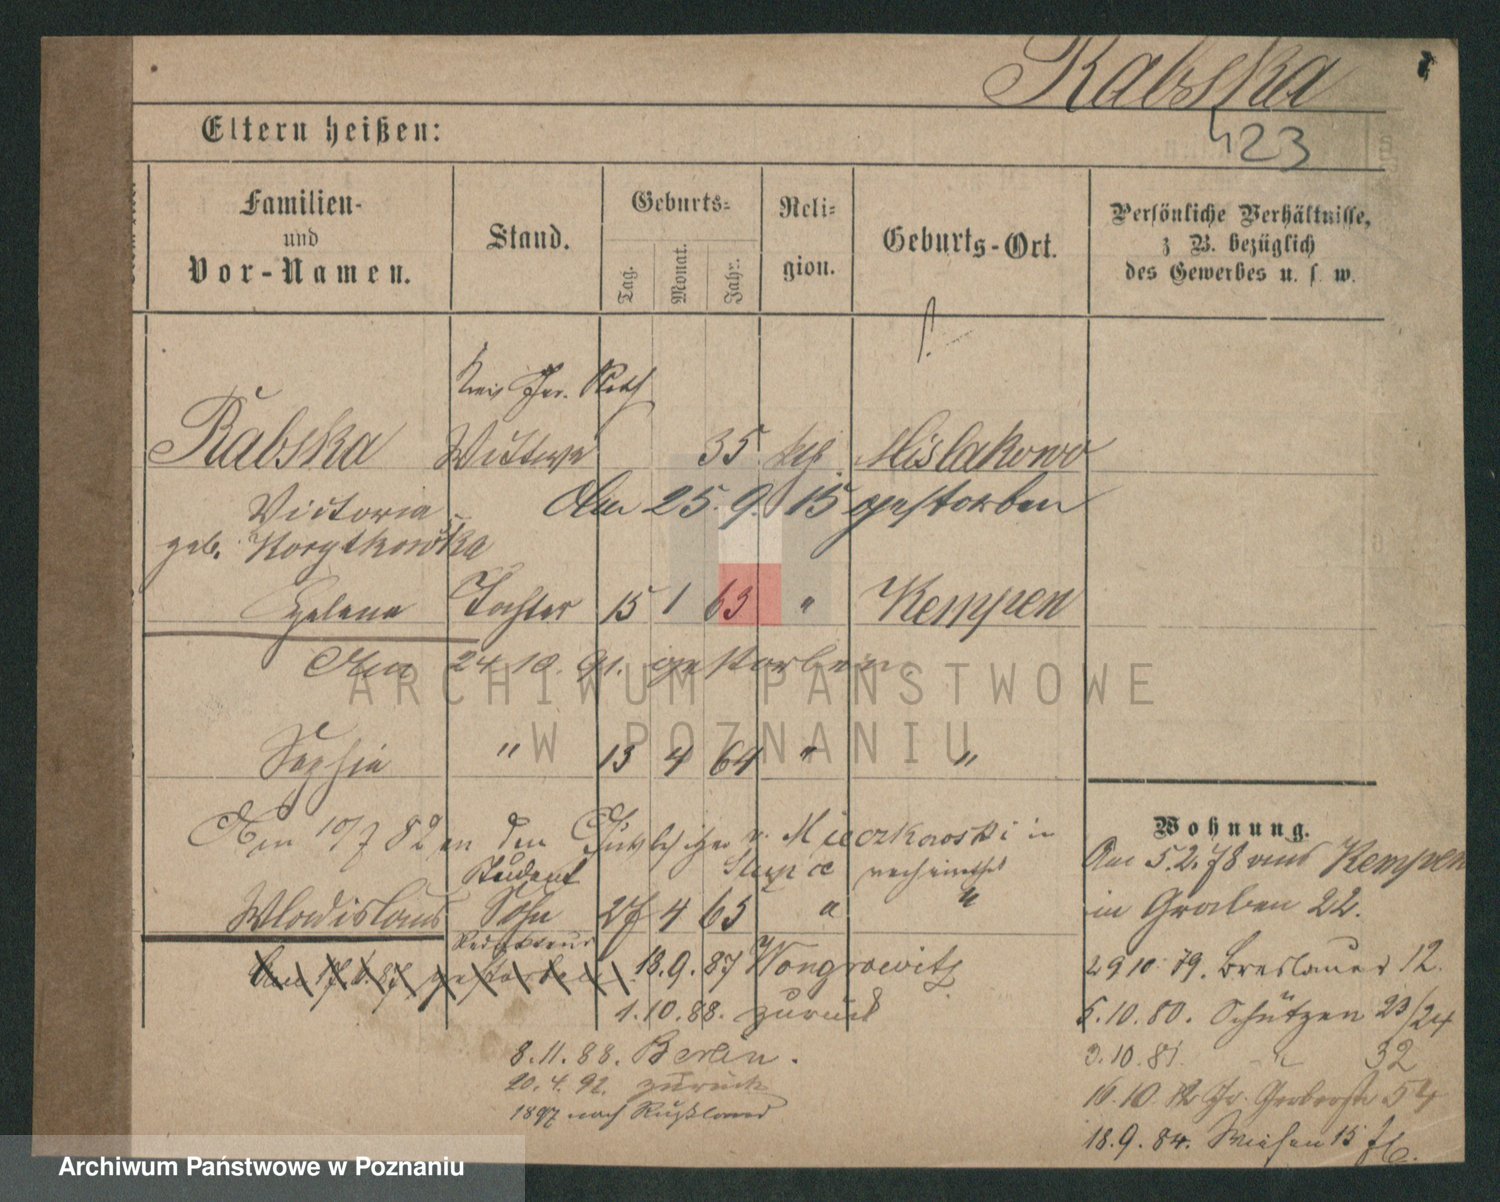 Rabska
423
Eltern heißen:
Familien-
und
Vor-Namen.
Stand.
Geburts-
Tag.
Monat.
Jahr.
Reli-
gion.
Geburts-Ort.
Persönliche Verhältnisse,
z. B. bezüglich
des Gewerbes u. s. w.
Rabska Wittwe 35 kth Mislakowo
Am 25. 9. 15 gestorben
Victoria
geb.
Helena Tochter 15 1 63 " Kempen
Am 24.10.91. gestorben
Sophia " 13 4 64 " "
Am 10/7 82 an den v. Mieczkowski in
Student verheirathet
Wladislaus Sohn 27 4 65 " "
Redakteur
Am gestorben 18.9.87 Wongrowitz
1.10.88. zurück
8.11.88. Berlin.
20.4.92. zurück
1897 nach Rußland
Wohnung.
Am 5.2.78 aus Kempen
in Graben 22.
29 10 79. Breslauer 12.
5.10.80. Schützen 23/24
3.10.81. " 32
16.10 Gr. Gerberstr 54
18.9.84. Wiesen 15
ARCHIWUM PAŃSTWOWE
W POZNANIU
Archiwum Państwowe w Poznaniu